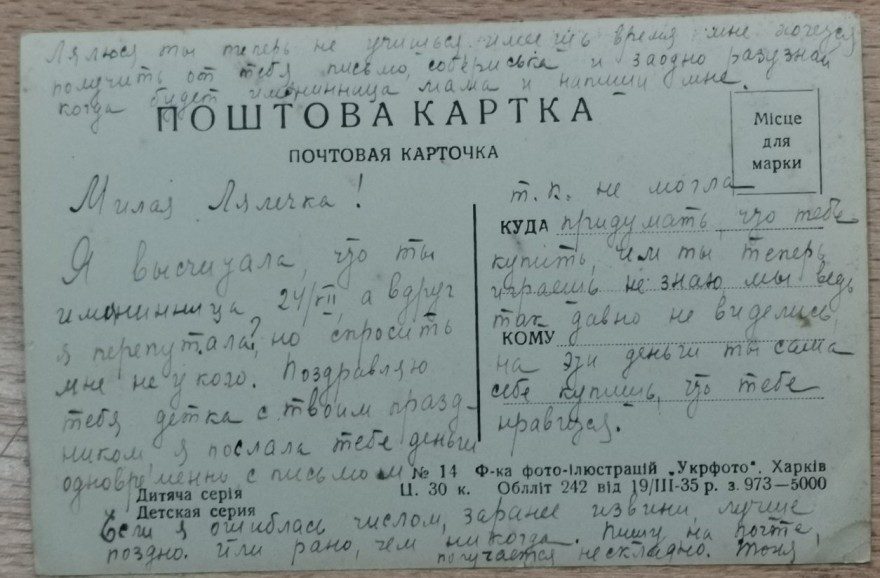 Лялюся ты теперь не учишься имеешь время мне хочется
получить от тебя письмо, соберися и заодно разузнай
когда будет именинница мама и напиши мне.
ПОШТОВА КАРТКА
ПОЧТОВАЯ КАРТОЧКА
Місце
для
марки
Милая Лялечка!
Я высчитала, что ты
именинница 24/VII, а вдруг
я перепутала? но спросить
мне не у кого. Поздравляю
тебя детка с твоим празд-
ником я послала тебе деньги
одновременно с письмом
т. к. не могла
КУДА придумать, что тебе
купить, чем ты теперь
играешь не знаю мы ведь
так давно не виделись,
КОМУ
на эти деньги ты сама
себе купишь, что тебе
нравится.
№ 14 Ф-ка фото-ілюстрацій „Укрфото". Харків
Ц. 30 к. Обліт 242 від 19/III-35 р. з. 973—5000
Дитяча серія
Детская серия
Если я ошиблась числом, заранее извини, лучше
поздно. Или рано, чем никогда. Пишу на почте,
получается нескладно. Тоня